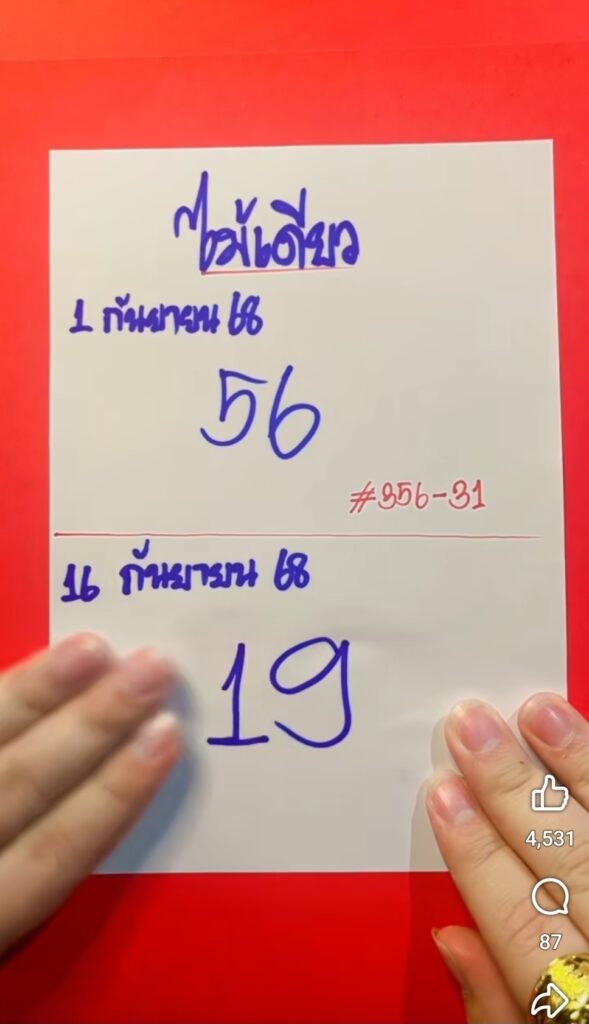 ไม้เดียว
1 กันยายน 68
56
#356-31
16 กันยายน 68
19
4,531
87